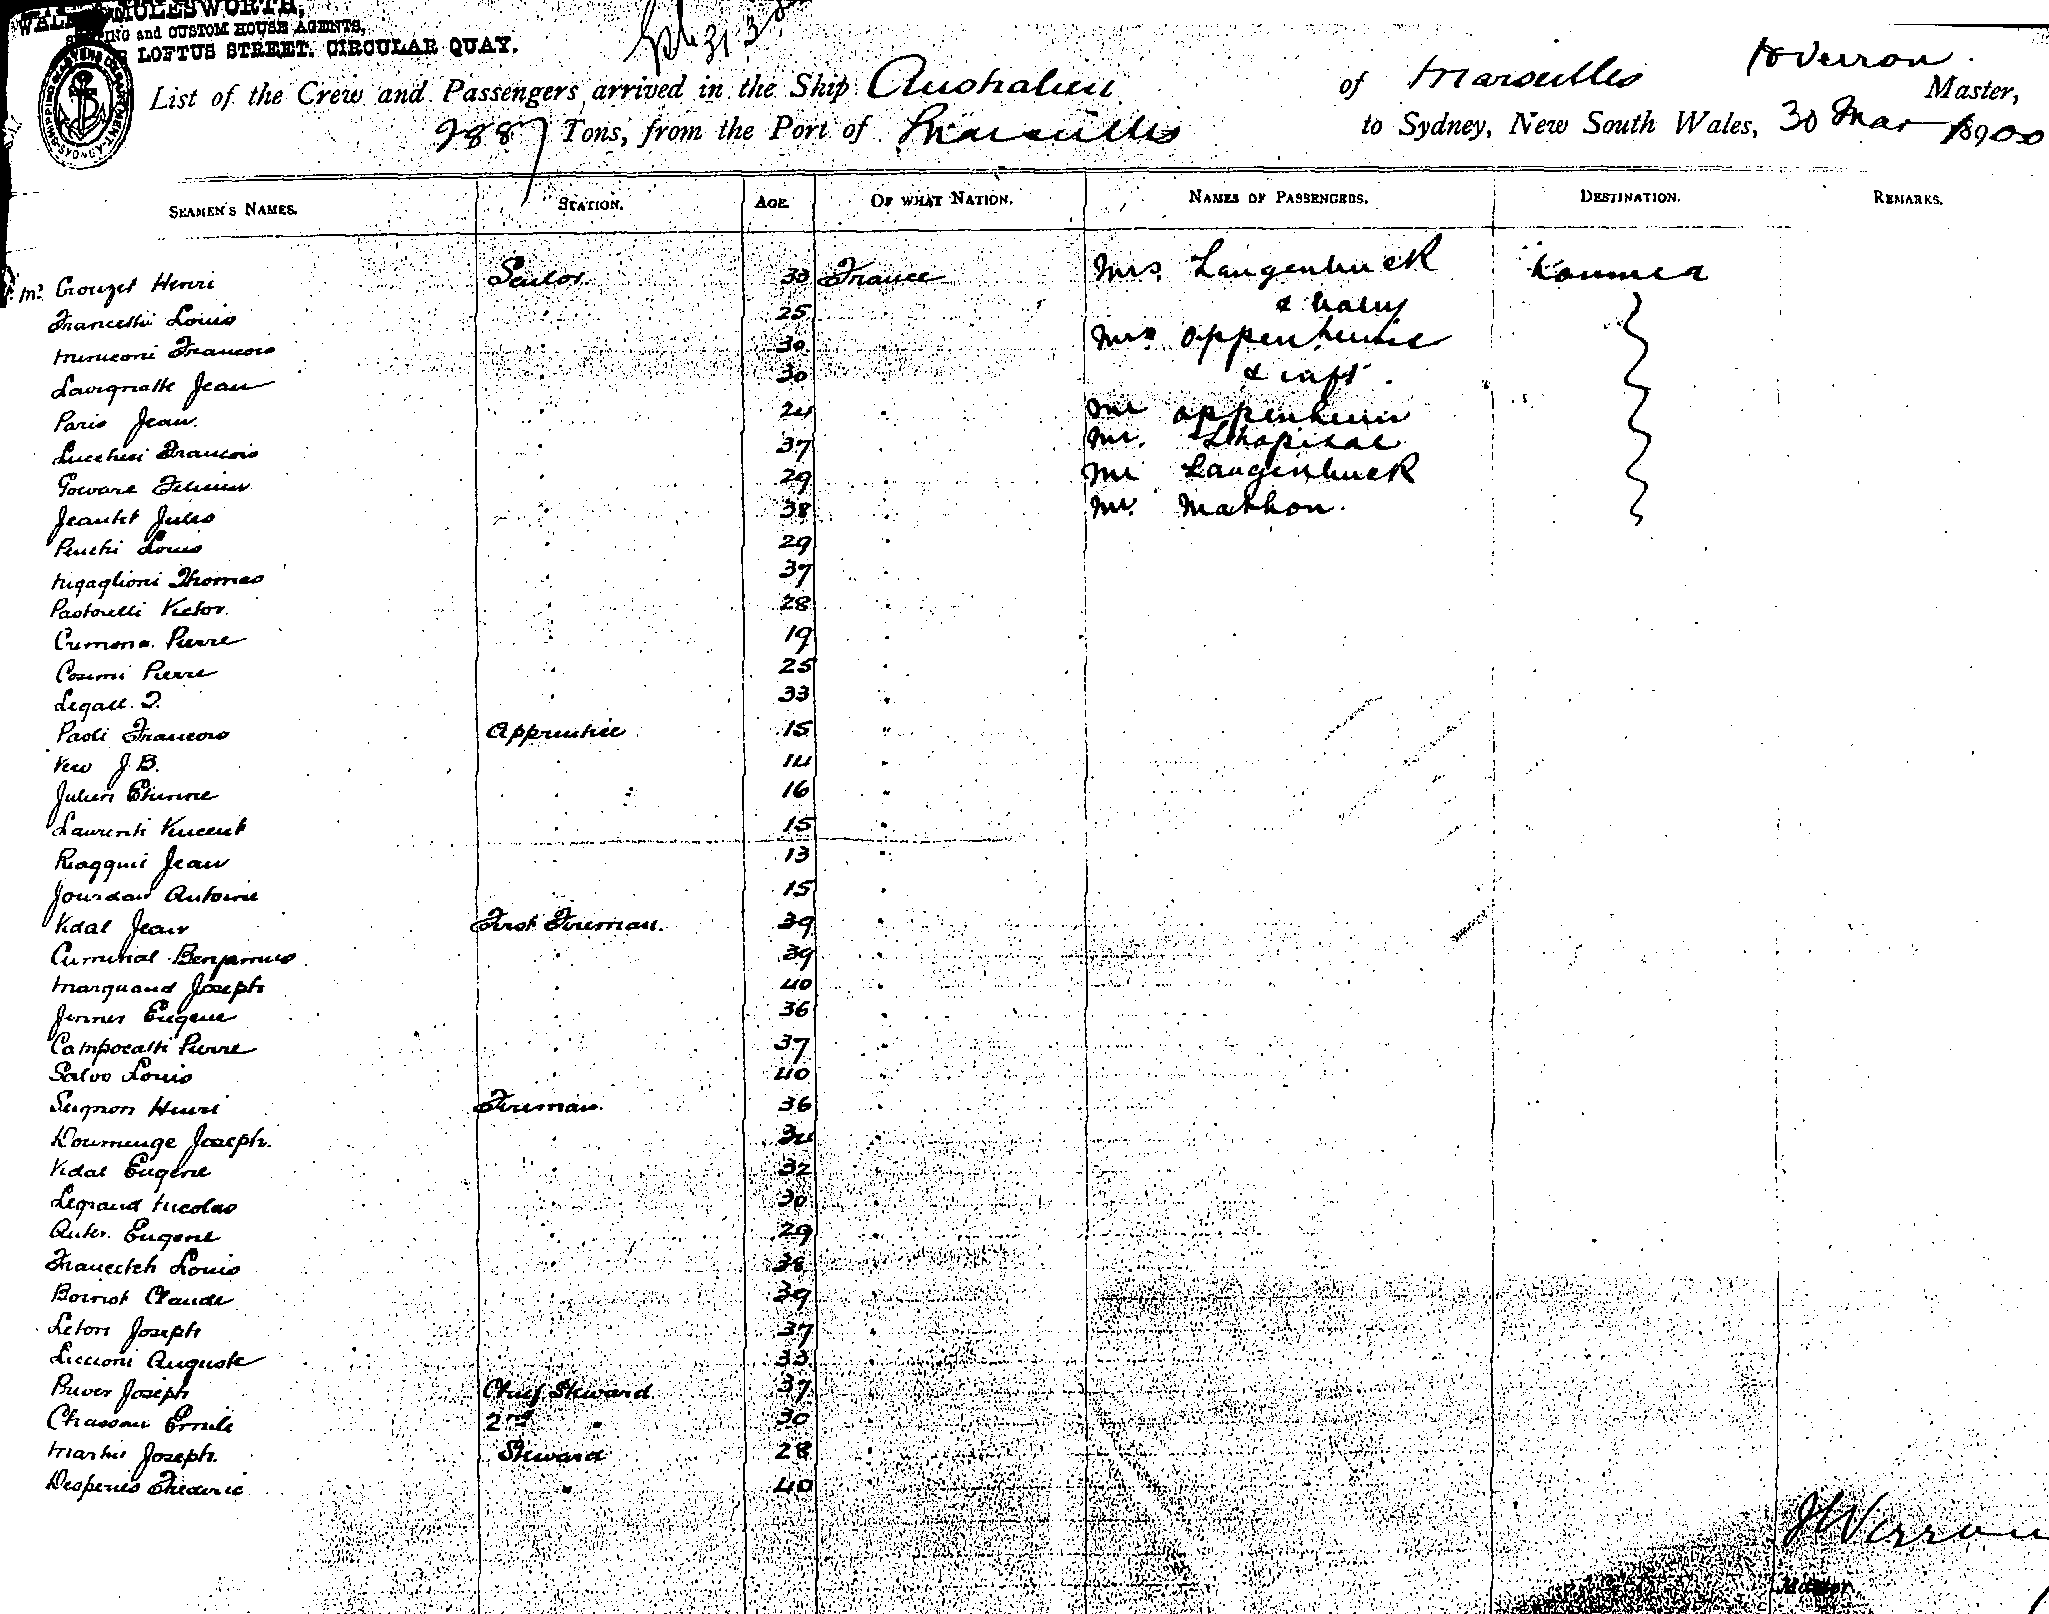 MOLESWORTH,
and CUSTOM HOUSE AGENTS,
LOFTUS STREET. CIRCULAR QUAY.
List of the Crew and Passengers arrived in the Ship Australien of Marseilles Verron Master,
Tons, from the Port of Marseilles to Sydney, New South Wales, 30 Mar 1900
SEAMEN'S NAMES. STATION. AGE OF WHAT NATION. NAMES OF PASSENGERS. DESTINATION. REMARKS.
Crouzet Henri Sailor 33 France Mrs Langenbuck Noumea
Francethi Louis 25 & baby
Francois 30 Mrs Oppenheim
Lavignatte Jean 30 & inft.
Paris Jean. 24 Mr Oppenheim
Lucchesi Francois 37 Mr. Lhopital
29 Mr Langenbuck
Jeantet Jules 38 Mr. Mathon.
Louis 29
Nigaglioni Thomas 37
Pastorelli Victor. 28
Cremona Pierre 19
Cosimi Pierre 25
Legall. 33
Paoli Francois Apprentice 15 "
J.B. 14
Julien Etienne 16
Laurenti Vincent 15
Jean 13
Jourdan Antoine 15
Vidal Jean First Fireman. 39
Benjamin 39
Marquand Joseph 40
Eugene 36
Campocasti Pierre 37
Salvo Louis 40
Seignon Henri Fireman. 36
Doumenge Joseph. 34
Vidal Eugene 32
Legrand Nicolas 30
Eugene 29
Louis 38
Boirot Claude 39
Leton Joseph 37
Liccioni Auguste 33
Joseph Chief Steward 37
Emile 2nd " 30
Martin Joseph. Steward 28
Frederic " 40
JVerron
Master.